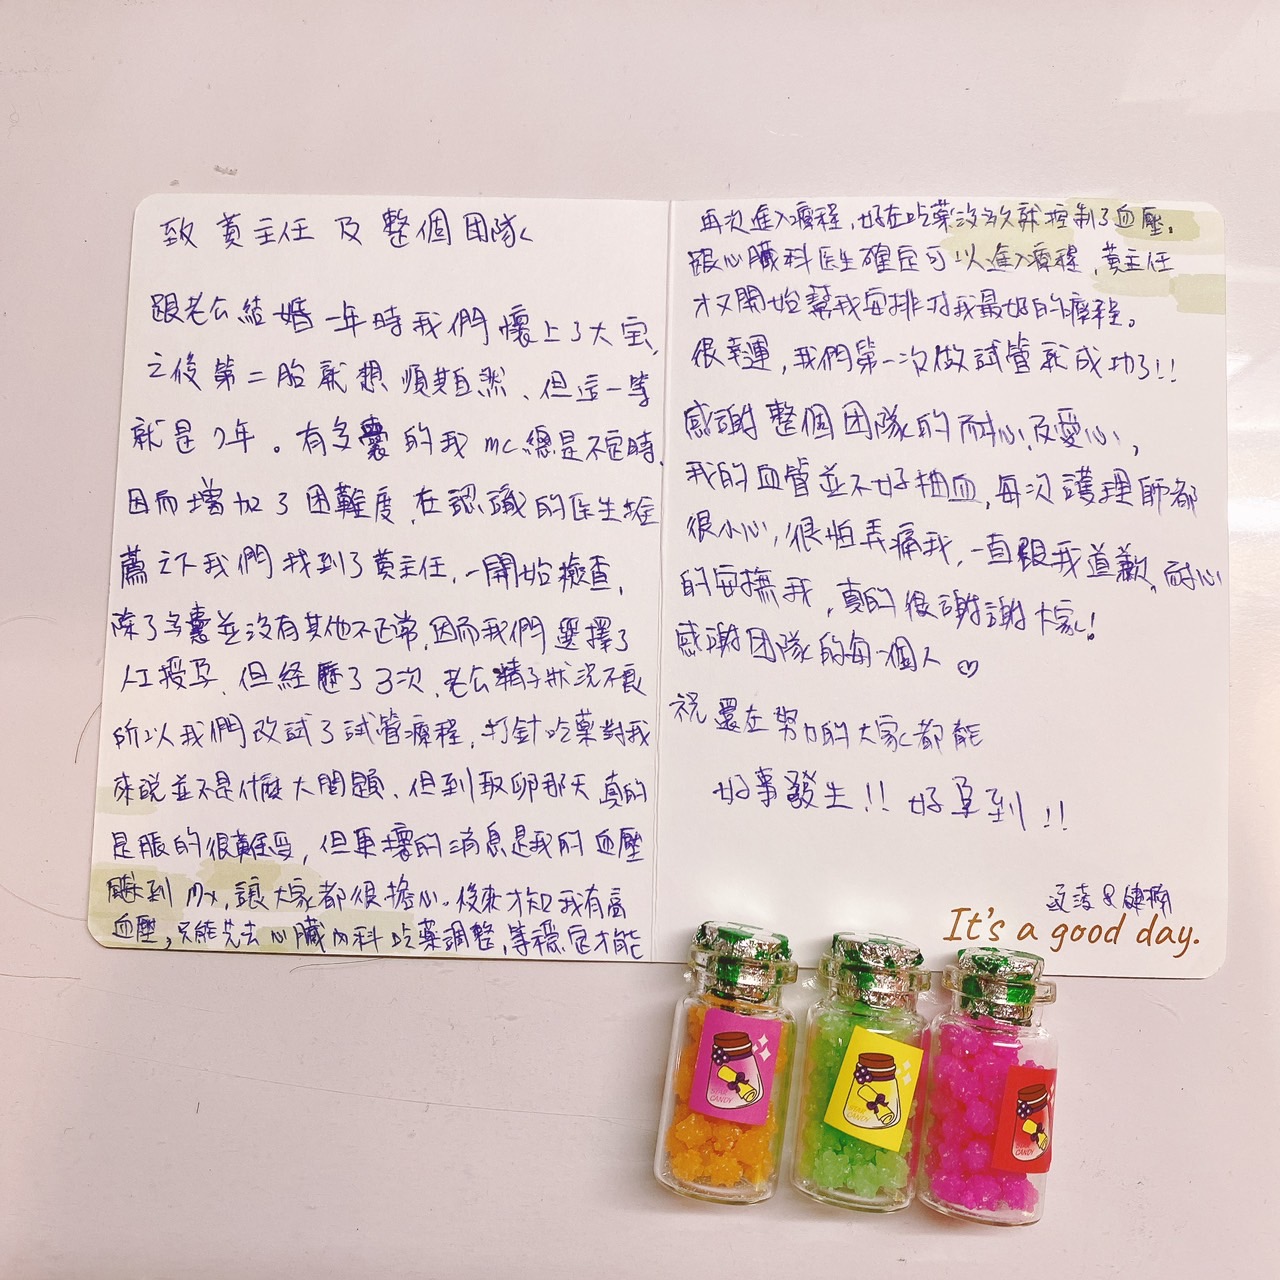 致 黃主任 及 整個團隊
跟老公結婚一年時我們懷上了大宝,
之後第二胎就想順其自然、但這一等
就是7年。有多囊的我mc總是不定時,
因而增加了困難度,在認識的医生推
薦之下我們找到了黃主任,一開始檢查,
除了多囊並沒有其他不正常,因而我們選擇了
人工授孕、但経歷了3次,老公精子狀況不良
所以我們改試了試管療程,打針吃藥對我
來說並不是什麼大問題、但到取卵那天真的
是脹的很難受,但更壞的消息是我的血壓
到 讓大家都很擔心。後來才知我有高
血壓,只能先去心臟內科吃藥調整,等穩定才能
再次進入療程,好在吃藥沒多久就控制了血壓。
跟心臟科医生確定可以進入療程,黃主任
才又開始幫我安排对我最好的療程。
很幸運,我們第一次做試管就成功了!!
感謝整個团隊的耐心及愛心,
我的血管並不好抽血,每次護理師都
很小心,很怕弄痛我,一直跟我道歉,耐心
的安撫我,真的很謝謝大家!
感謝团隊的每一個人♡
祝還在努力的大家都能
好事發生!! 好孕到!!
It's a good day.
CANDY
CANDY
CANDY